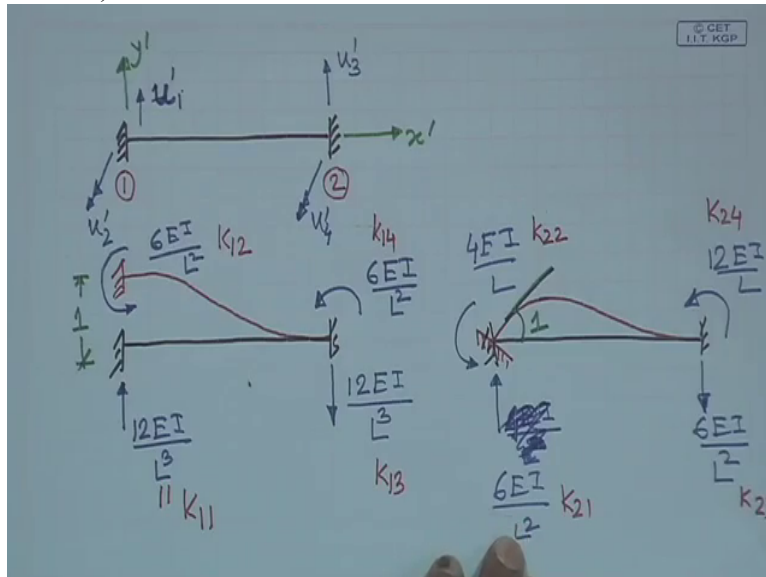 © CET
I.I.T. KGP
y'
u'₁
u'₃
x'
①
②
u'₂
u'₄
6EI/L² K₁₂
K₁₄
6EI/L²
1
12EI/L³
" K₁₁
12EI/L³
K₁₃
4EI/L K₂₂
1
K₂₄
12EI/L
6EI/L² K₂₁
6EI/L²
K₂